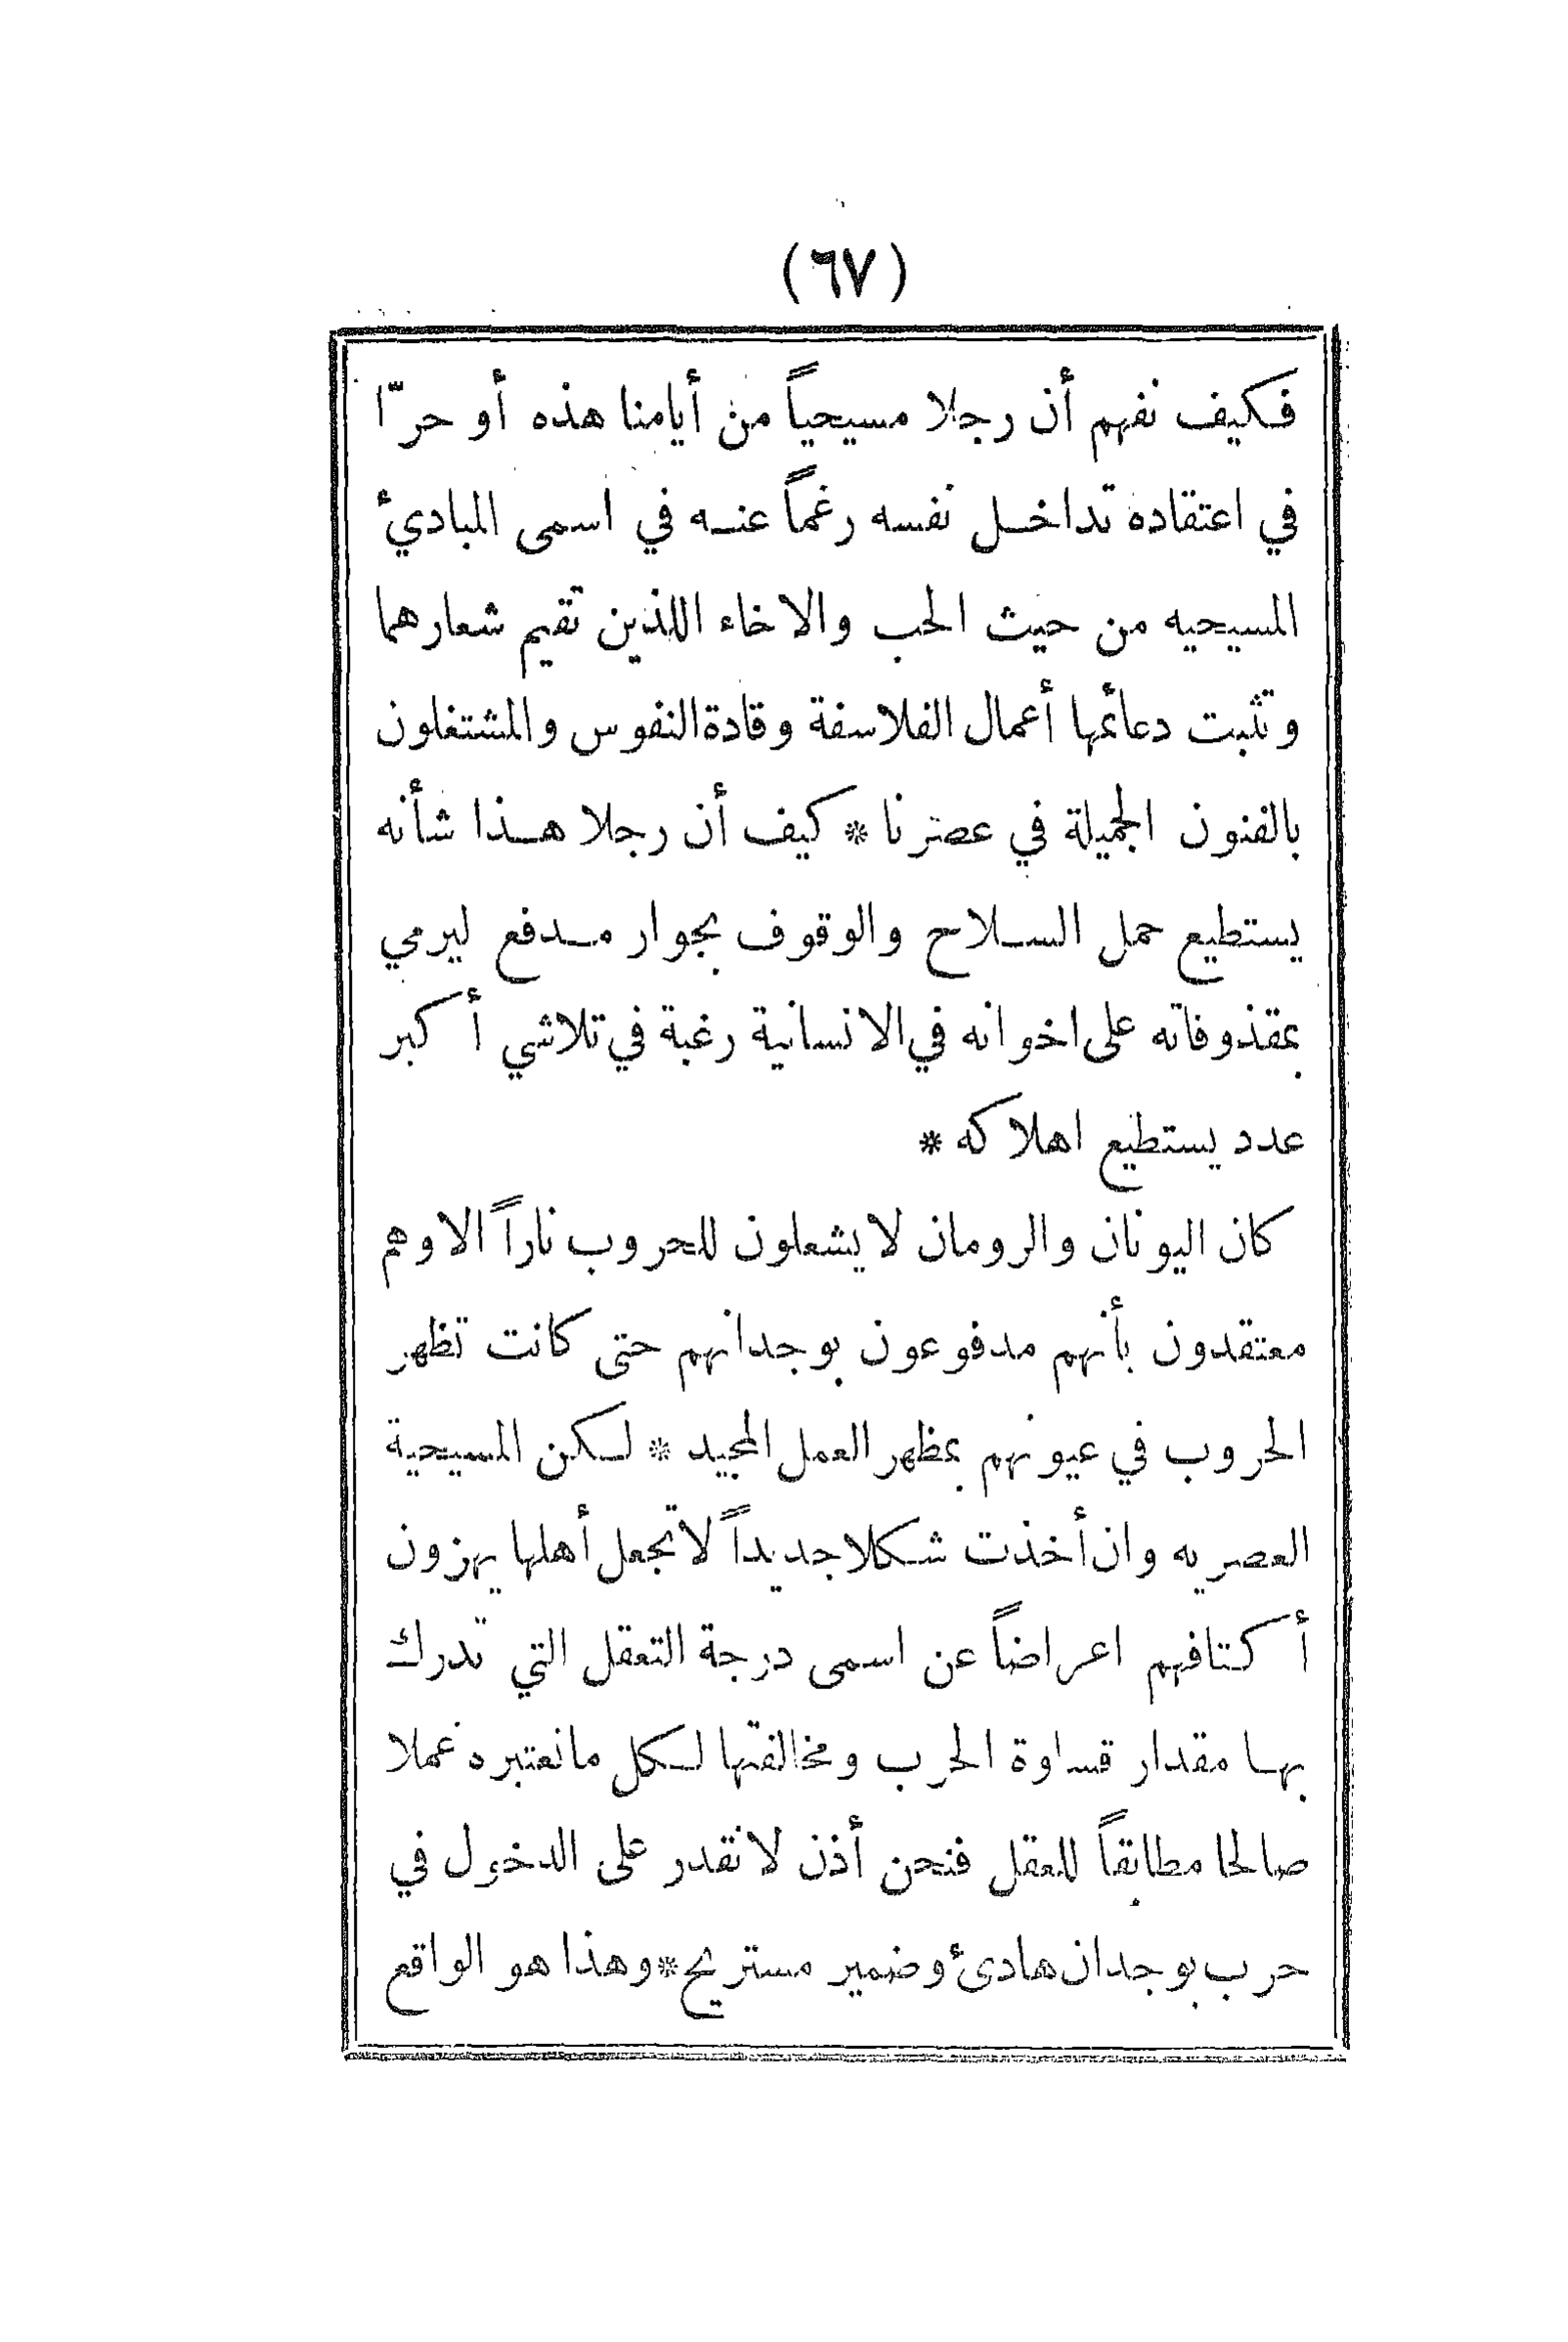 (٦٧)
فكيف نفهم أن رجلا مسيحياً من أيامنا هذه أو حرّا
في اعتقاده تداخل نفسه رغماً عنه في اسمى المبادئ
المسيحيه من حيث الحب والاخاء اللذين تقيم شعارهما
وتثبت دعائمها أعمال الفلاسفة وقادة النفوس والمشتغلون
بالفنون الجميلة في عصرنا * كيف أن رجلا هذا شأنه
يستطيع حمل السلاح والوقوف بجوار مدفع ليرمي
بمقذوفاته على اخوانه في الانسانية رغبة في تلاشي أكبر
عدد يستطيع اهلاكه *
كان اليونان والرومان لا يشعلون للحروب ناراً الا وهم
معتقدون بأنهم مدفوعون بوجدانهم حتى كانت تظهر
الحروب في عيونهم بمظهر العمل المجيد * لكن المسيحية
العصريه وان أخذت شكلا جديداً لا تجعل أهلها يهزون
أكتافهم اعراضاً عن اسمى درجة التعقل التي تدرك
بها مقدار قساوة الحرب ومخالفتها لكل ما نعتبره عملا
صالحا مطابقاً للعقل فنحن أذن لا نقدر على الدخول في
حرب بوجدان هادئ وضمير مستريح * وهذا هو الواقع